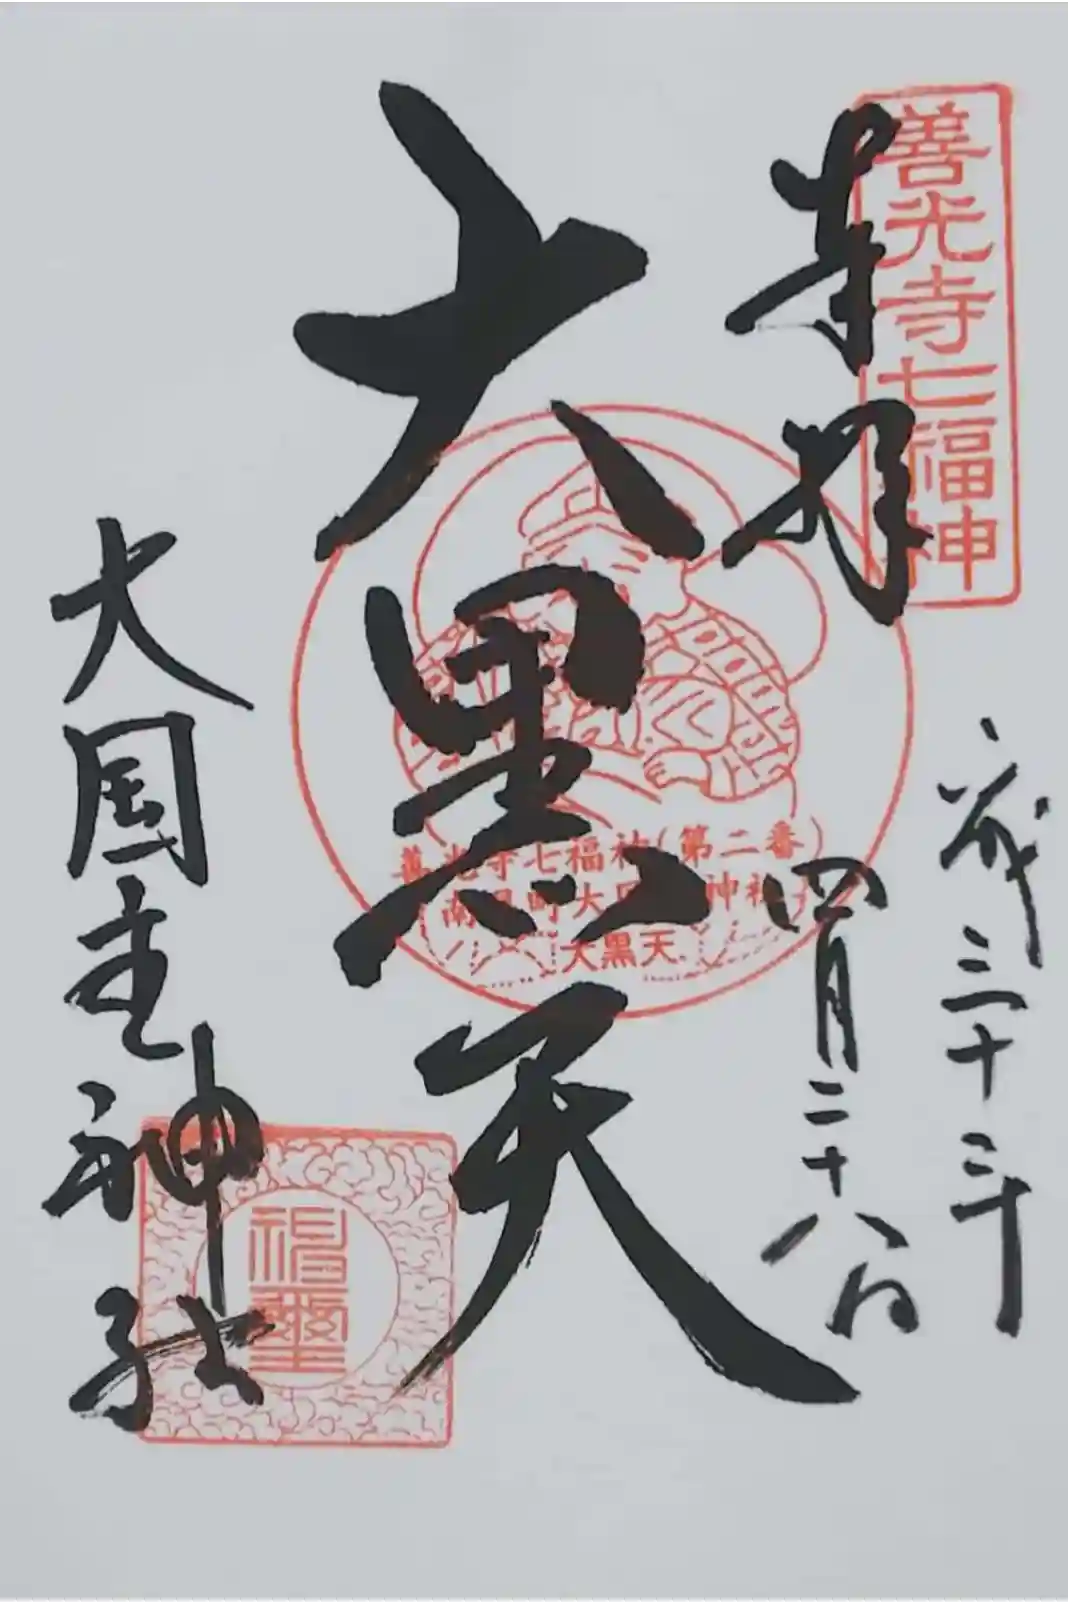 善光寺七福神
奉拝
平成三十三年
四月二十八日
大黒天
善光寺七福神(第二番)
南県町大国主神社
大黒天
大国主神社
神璽